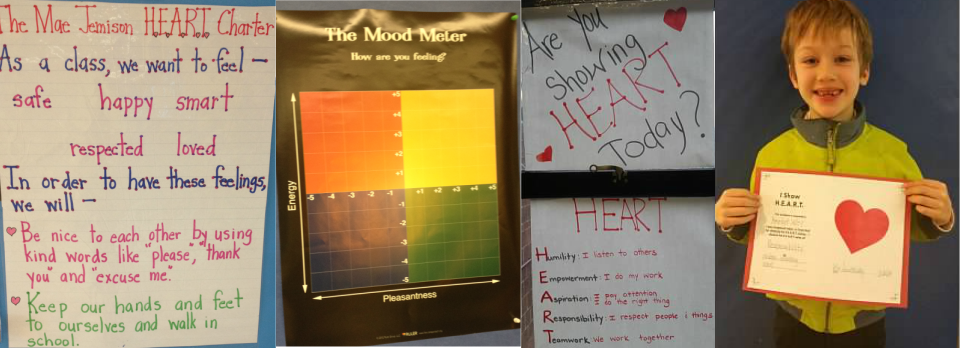 The Mae Jemison H.E.A.R.T. Charter
As a class, we want to feel -
safe happy smart
respected loved
In order to have these feelings,
we will -
Be nice to each other by using
kind words like "please", "thank
you" and "excuse me."
Keep our hands and feet
to ourselves and walk in
school.
The Mood Meter
How are you feeling?
+5
+3
+2
+1
-5 -4 -3 -2 -1 +1 +2 +3 +4 +5
-1
-2
-3
-4
-5
Energy
Pleasantness
Are You
Showing
HEART
Today?
HEART
Humility: I listen to others
Empowerment: I do my work
Aspiration: I pay attention
I do the right thing
Responsibility: I respect people & things
Teamwork: We work together
I Show
H.E.A.R.T.
Responsibility